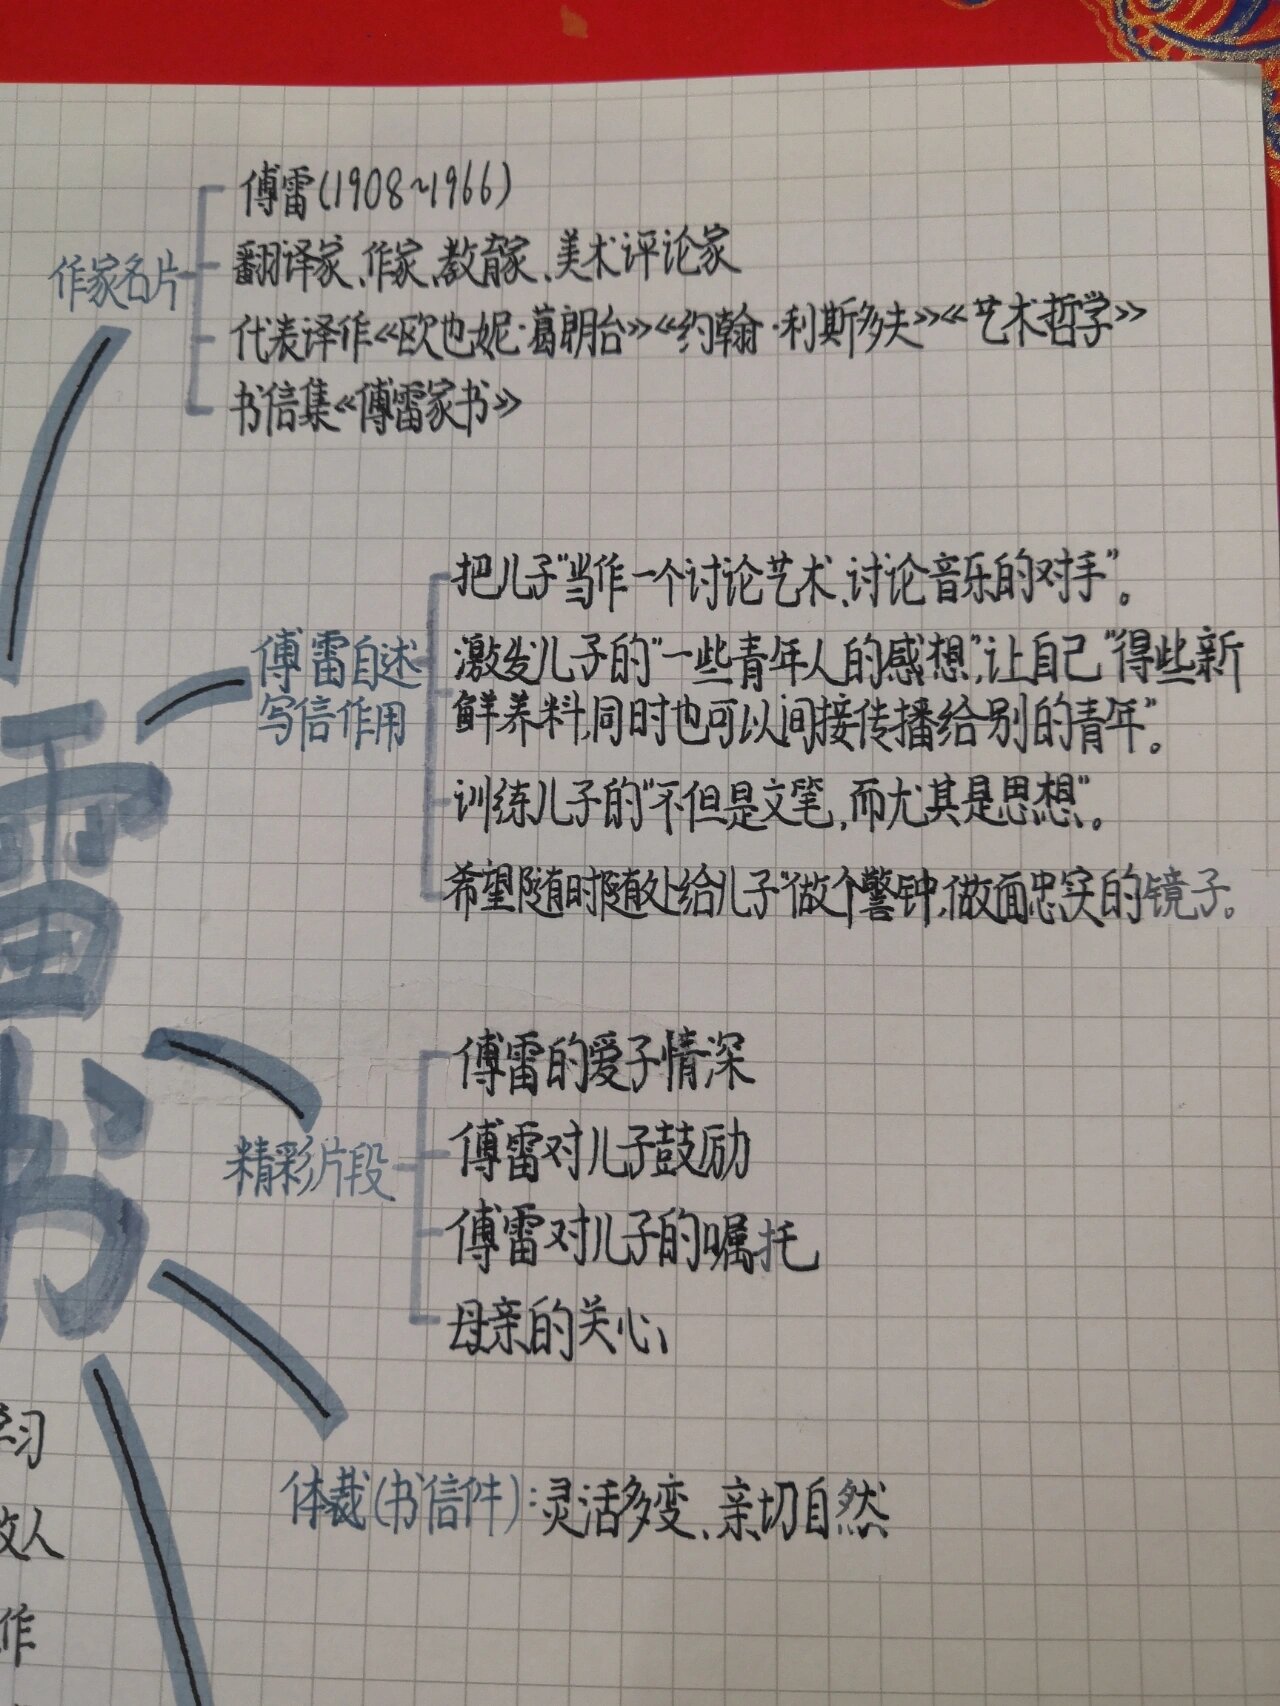 傅雷(1908~1966)
作家名片
翻译家、作家、教育家、美术评论家
代表译作《欧也妮·葛朗台》《约翰·利斯多夫》《艺术哲学》
书信集《傅雷家书》
把儿子"当作一个讨论艺术、讨论音乐的对手"。
傅雷自述
写信作用
激发儿子的"一些青年人的感想",让自己"得些新
鲜养料,同时也可以间接传播给别的青年"。
训练儿子的"不但是文笔,而尤其是思想"。
希望随时随处给儿子"做个警钟,做面忠实的镜子。
雷
书
傅雷的爱子情深
精彩片段
傅雷对儿子鼓励
傅雷对儿子的嘱托
母亲的关心、
习
体裁(书信件):灵活多变、亲切自然
人
作